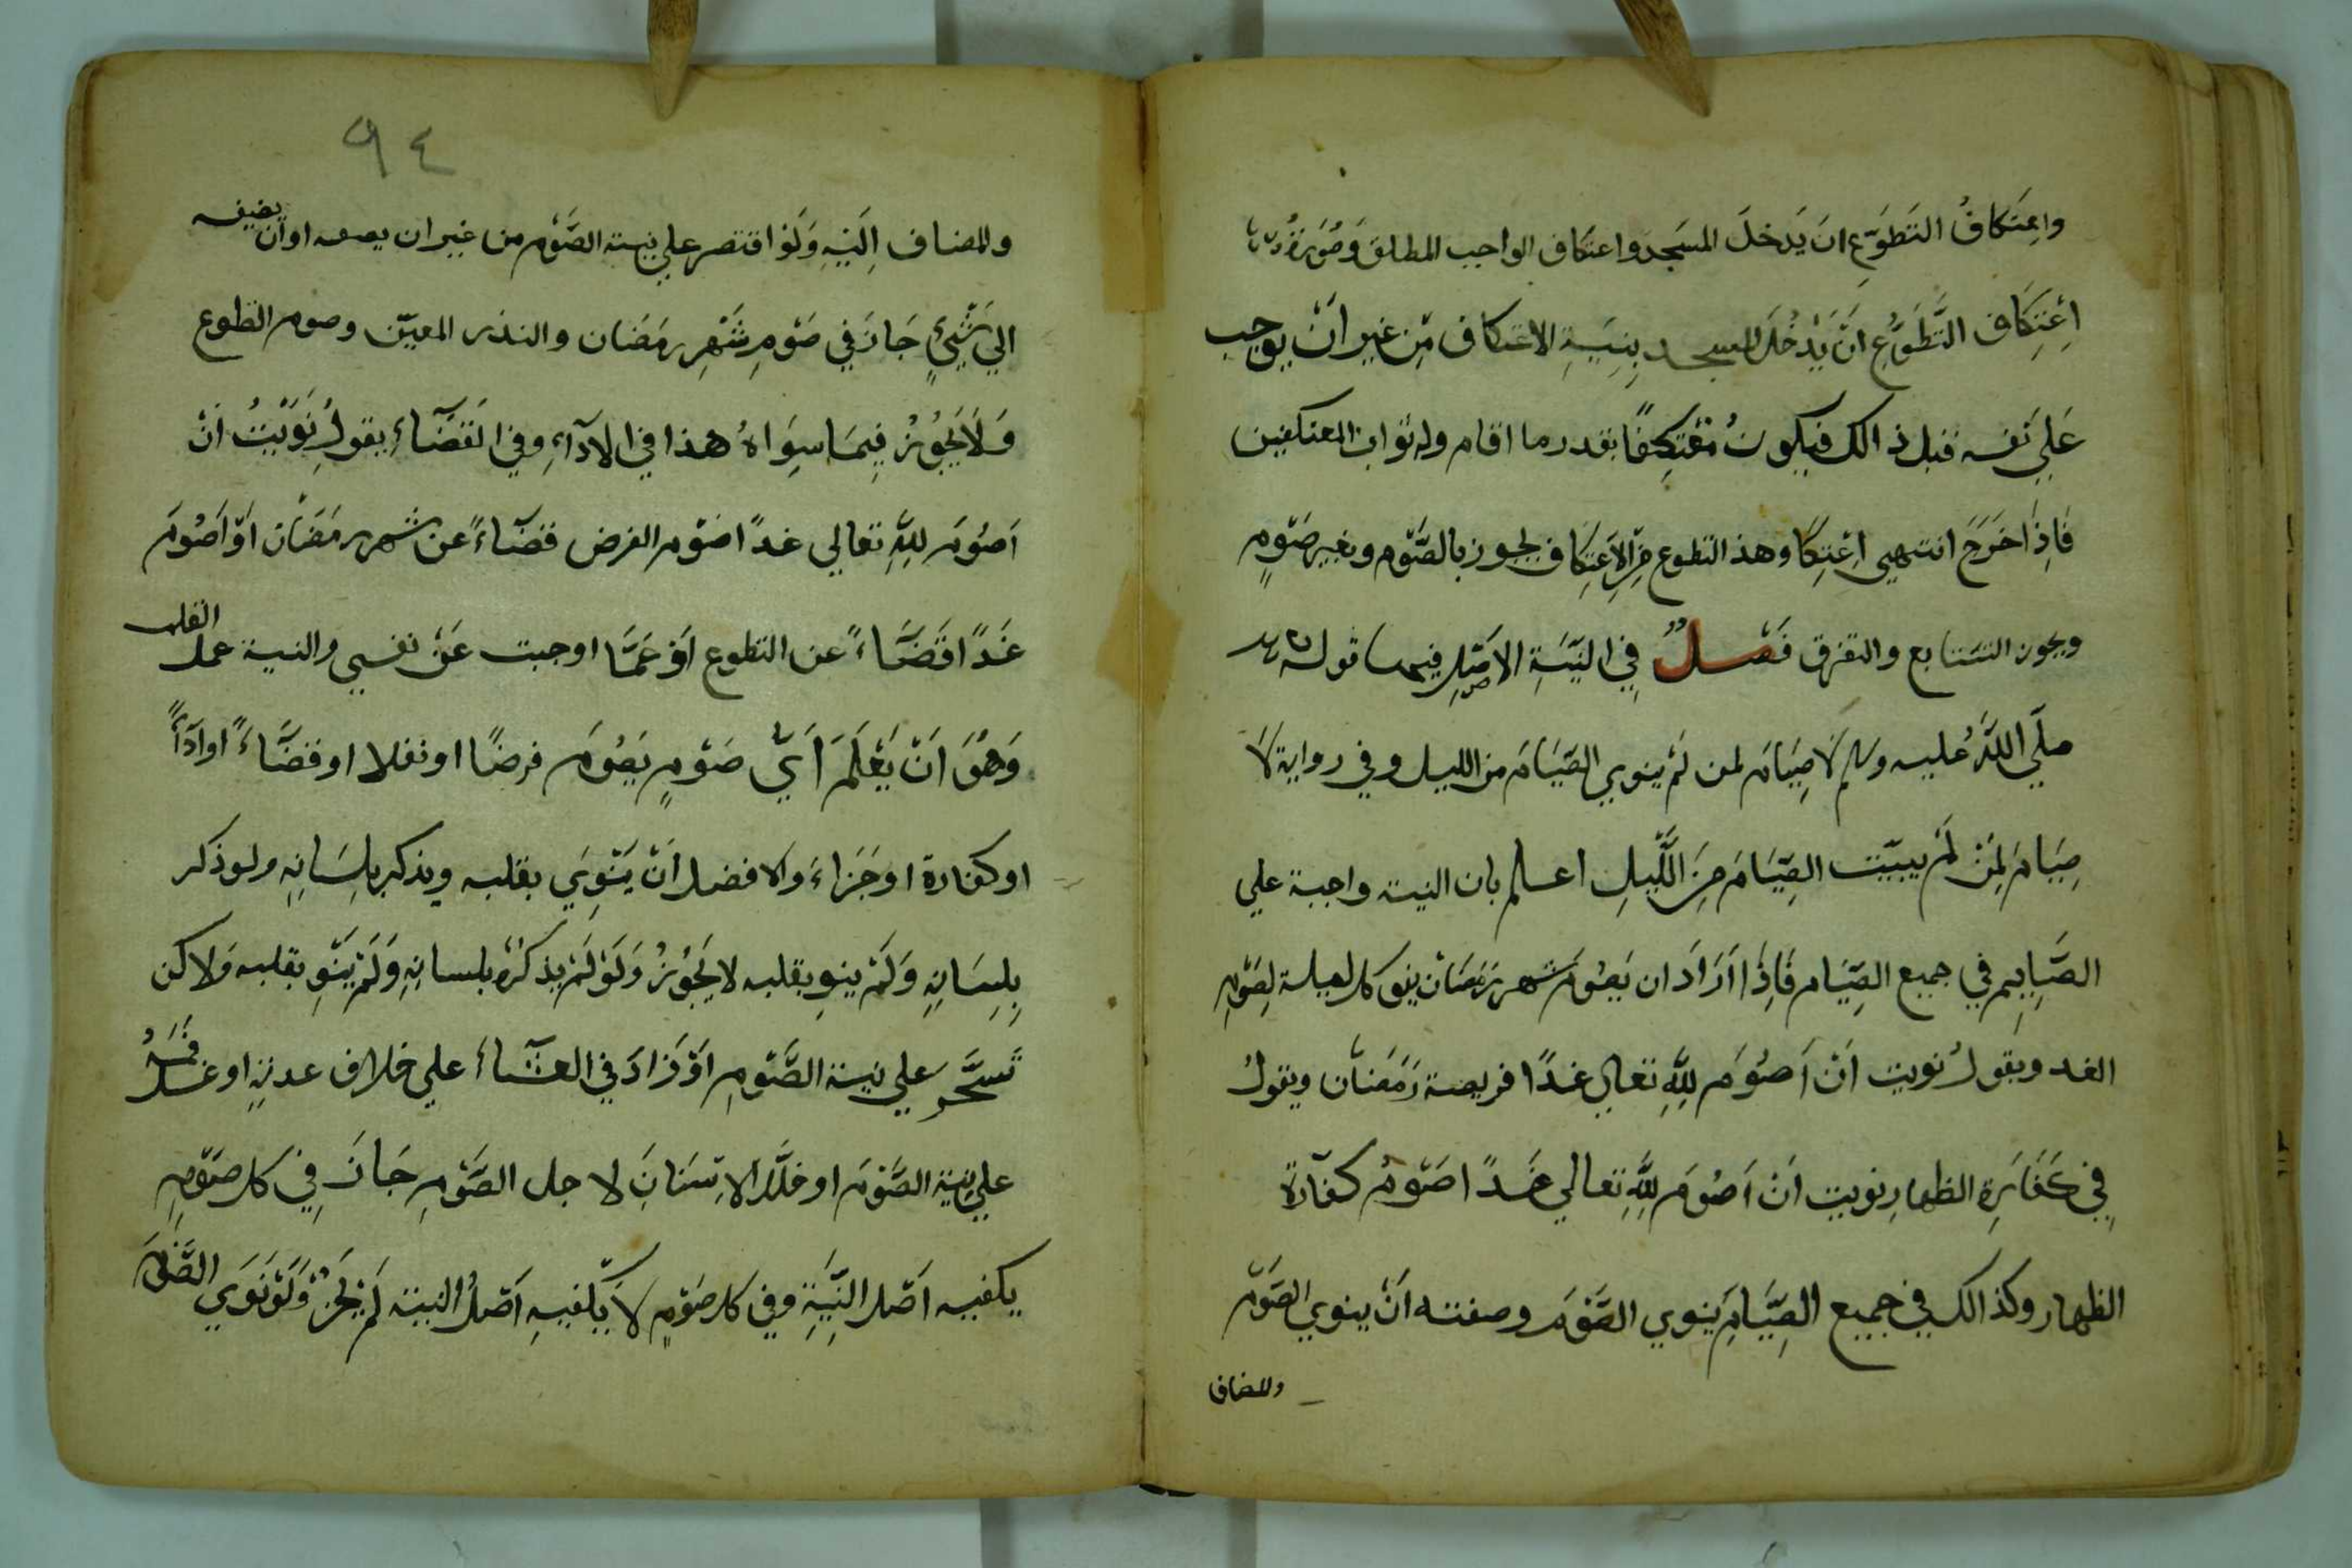 واعِتَكافُ التَطَوّعِ انَ يَدخلَ المسَجد واعتكاف الواجب المطلق وَصُورَة
اِعْتِكَاف التَّطَوُّعِ انَّ يَدْخُلَ المسجد بِنِيَةِ الاعتكاف مِّن غير انَّ يوجب
عَلي نَفسه قبل ذالك فيكونُ مُعْتَكِفًا بقدر ما اقام وله ثواب المعتكفين
فَاِذَا خَرَجَ انتهي اِعْتِكَا وهذ التطوع مِنَ الاَعتِكَاف يجوز بالصَّوم وبغير صَوْمٍ
ويجوز التتابع والتفرق فَصْلٌ فِي النِّيَةِ الاَصْلِ فيها قوله
صلّي اللَّهُ عليه وسلم لَا صِيَامَ لمن لَمْ ينوي الصِّيَامَ من الليل وفي رواية لَا
صِيَامَ لِمَنْ لَمْ يبيّت الصِّيَامَ مِنَ اللَّيلِ اعلم بان النية واجبة علي
الصَّايِمِ في جميع الصِّيَام فَاِذَا اَرَادَ ان يَصُومَ شهر رَمَضَان ينو كل ليلة لِصَوْمِ
الغد ويقولُ نويت اَنْ اَصُوَمَ لِلَّهِ تعالي غدًا فريضة رَمَضَان ويقولُ
فِي كَفَارَةِ الظهارِ نويت اَنْ اَصُومَ لِلَّهِ تعالي غَدًا صَوْمُ كفّارة
الظهار وكذالك في جميع الصِّيَامِ يَنوي الصَّوْمَ وصفته اَنْ ينوي الصَوْم
والمضاف
٩٤
والمضاف اِلَيْهِ وَلَوْ اقتصر علي نية الصَّوْم من غير ان يصفه او ان يضيفه
الي شَيْءٍ جَازَ في صَوْمِ شَهْرِ رَمَضان والنذر المعيّن وصوم التطوع
وَلَا يَجُوزُ فِيمَا سِوَاهُ هذا في الادآءِ وفي القَضَآءِ يقولُ نَوَيْتُ اَنْ
اَصُومَ لِلَّهِ تعالي غدًا صَوْم الفرض قضَآءً عن شهر رمَضَان اَوْ اَصُومَ
غَدًا قَضَاءً عن التطوع اَوْ عَمَّا اوجبت عَنْ نفسي والنية عمل القلب
وَهُوَ اَنْ يَعْلَمَ اَيَّ صَوْمٍ يَصُومَ فرضًا او نفلا او قضَآءً او ادآءً
او كفارة او جَزاءَ والافضل اَنْ يَنْوِيَ بقلبه ويذكر بلِسَانِهِ ولو ذكر
بِلِسَانِهِ وَلَمْ ينوِ بقلبه لا يَجُوزُ وَلَوْ لَمْ يذكرهُ بلسانِهِ وَلَمْ يَنْوِ بقلبه وَلاكن
تَسَحَّر علي نية الصَّوْمِ اَوْ زَادَ في العشَآء علي خلاف عدته او غسل فَمَهُ
علي نِية الصَّوْمَ او خلَّل الاسْنَانَ لاجل الصَّوْمِ جَازَ فِي كل صَوْمِ
يكفيه اَصْل النِّيَةِ وفي كل صَوْمٍ لَا يَكفيهِ اَصْلُ النية لَمْ يَجُزْ وَلَوْ نَوَي الصَّوْمَ